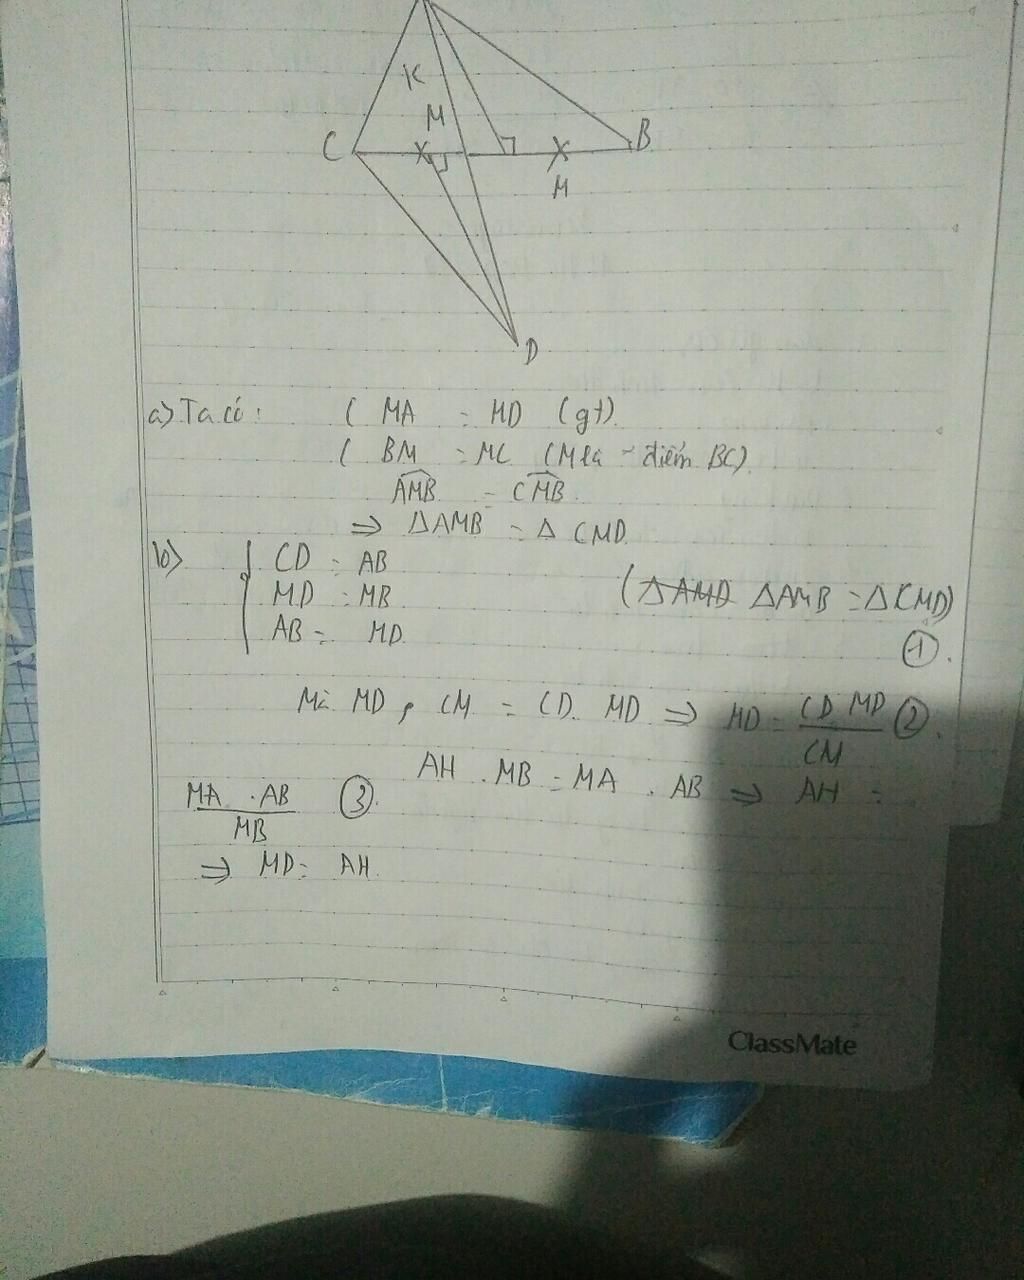 K
M
C
B
M
D
a) Ta có: ( MA = MD (gt).
( BM = MC (M là ~ điểm BC).
AMB = CMB.
⇒ ΔAMB = Δ CMD.
b) { CD = AB
MD = MB (ΔAMD ΔAMB = ΔCMD)
AB = MD. ①.
Mà MD , CM = CD. MD ⇒ HD = CD. MD / CM ②.
AH . MB = MA . AB ⇒ AH =
MA . AB / MB ③.
⇒ MD = AH.
ClassMate